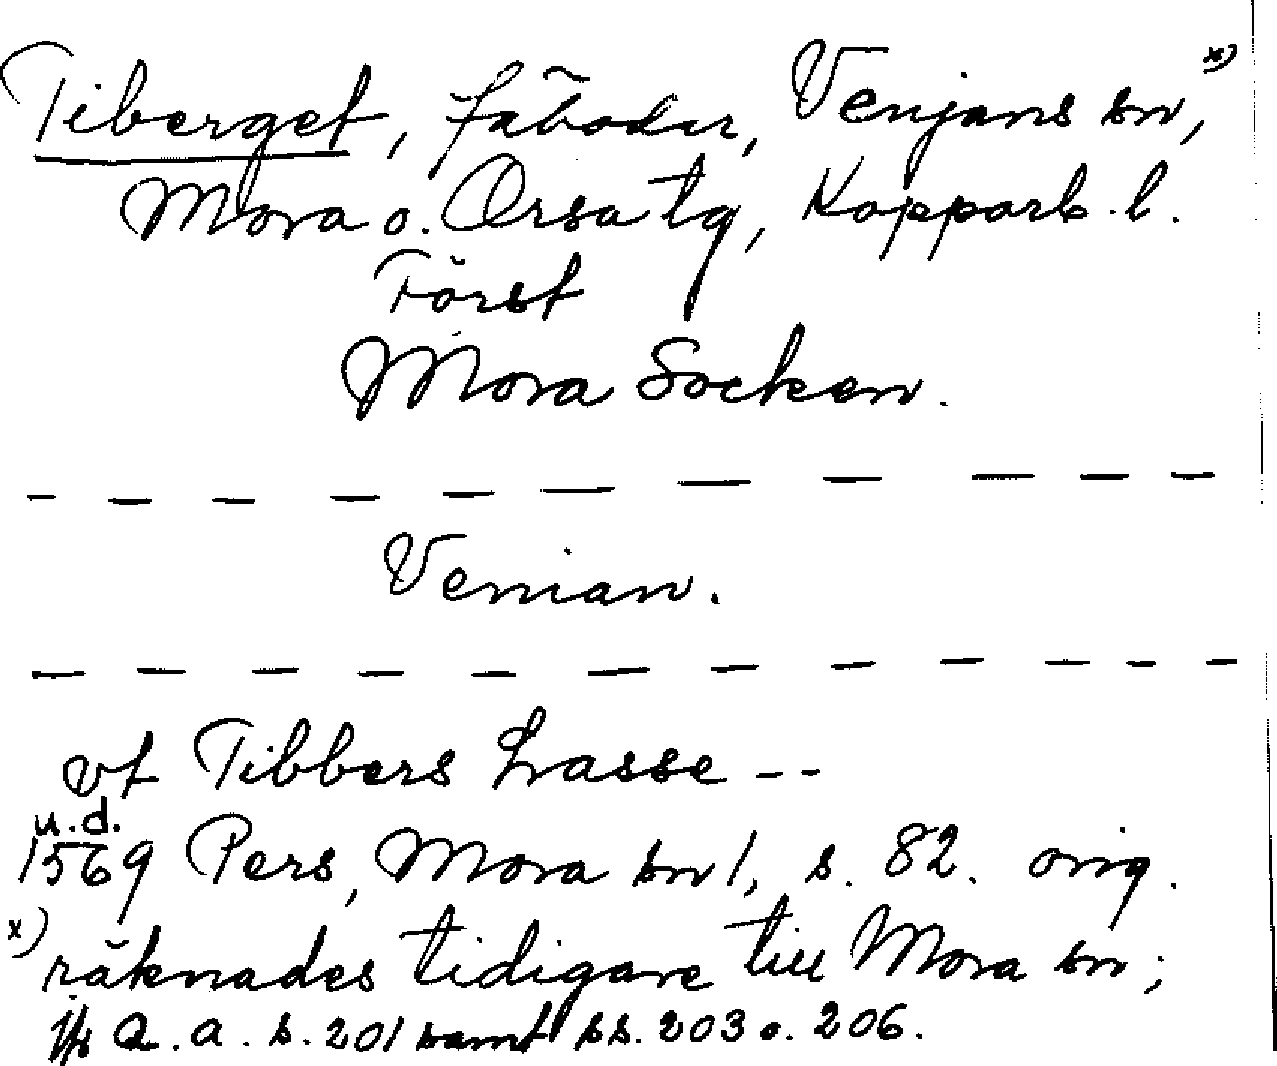 Tiberget, fäboder, Venjans sn, x)
Mora o. Orsa tg, Kopparb. l.
Först
Mora Socken.
Venian.
vt Tibbers Lasse --
u.d.
1569 Pers, Mora sn 1, s. 82. orig.
x) räknades tidigare till Mora sn;
jfr a.a. s. 201 samt ss. 203 o. 206.